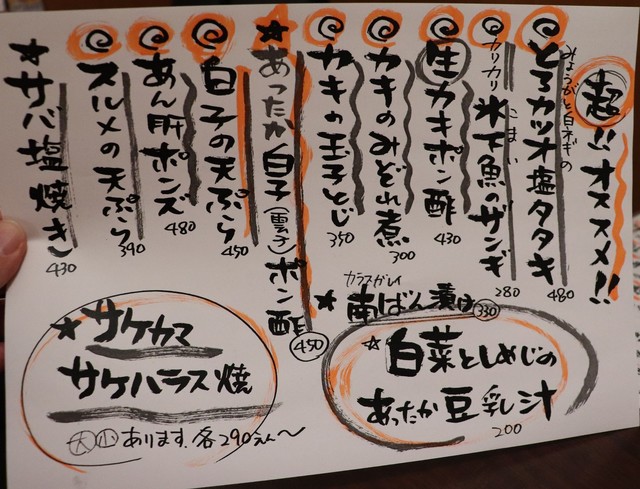 超!!オススメ!!
みょうがと白ネギの
とろカツオ塩タタキ
480
カリカリ氷下魚のザンギ
こまい
280
生カキポン酢
430
カキのみぞれ煮
300
カキの玉子とじ
350
★あったか白子(雲子)ポン酢
450
白子の天ぷら
450
あん肝ポンズ
480
スルメの天ぷら
390
★サバ塩焼き
430
カラスガレイ
★南ばん漬け
330
★サケカマ
サケハラス焼
大小あります。各290えん〜
☆白菜としめじの
あったか豆乳汁
200